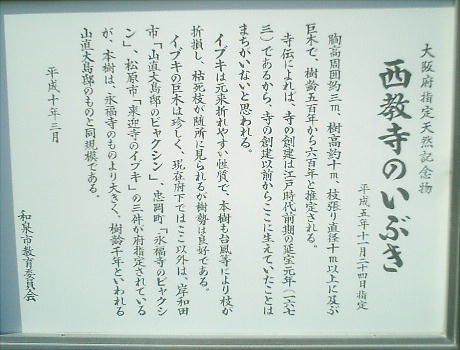 大阪府指定天然記念物
西教寺のいぶき
平成五年十一月二十四日指定
胸高周囲約三m、樹高約十m、枝張り直径十m以上に及ぶ
巨木で、樹齢五百年から六百年と推定される。
寺伝によれば、寺の創建は江戸時代前期の延宝元年（一六七
三）であるから、寺の創建以前からここに生えていたことは
まちがいないと思われる。
イブキは元来折れやすい性質で、本樹も台風等により枝が
折損し、枯死枝が随所に見られるが樹勢は良好である。
イブキの巨木は珍しく、現在府下ではここ以外は、岸和田
市「山直大島邸のビャクシン」、忠岡町「永福寺のビャクシ
ン」、松原市「来迎寺のイブキ」の三件が府指定されている
が、本樹は、永福寺のものより大きく、樹齢千年といわれる
山直大島邸のものと同規模である。
平成十年三月
和泉市教育委員会